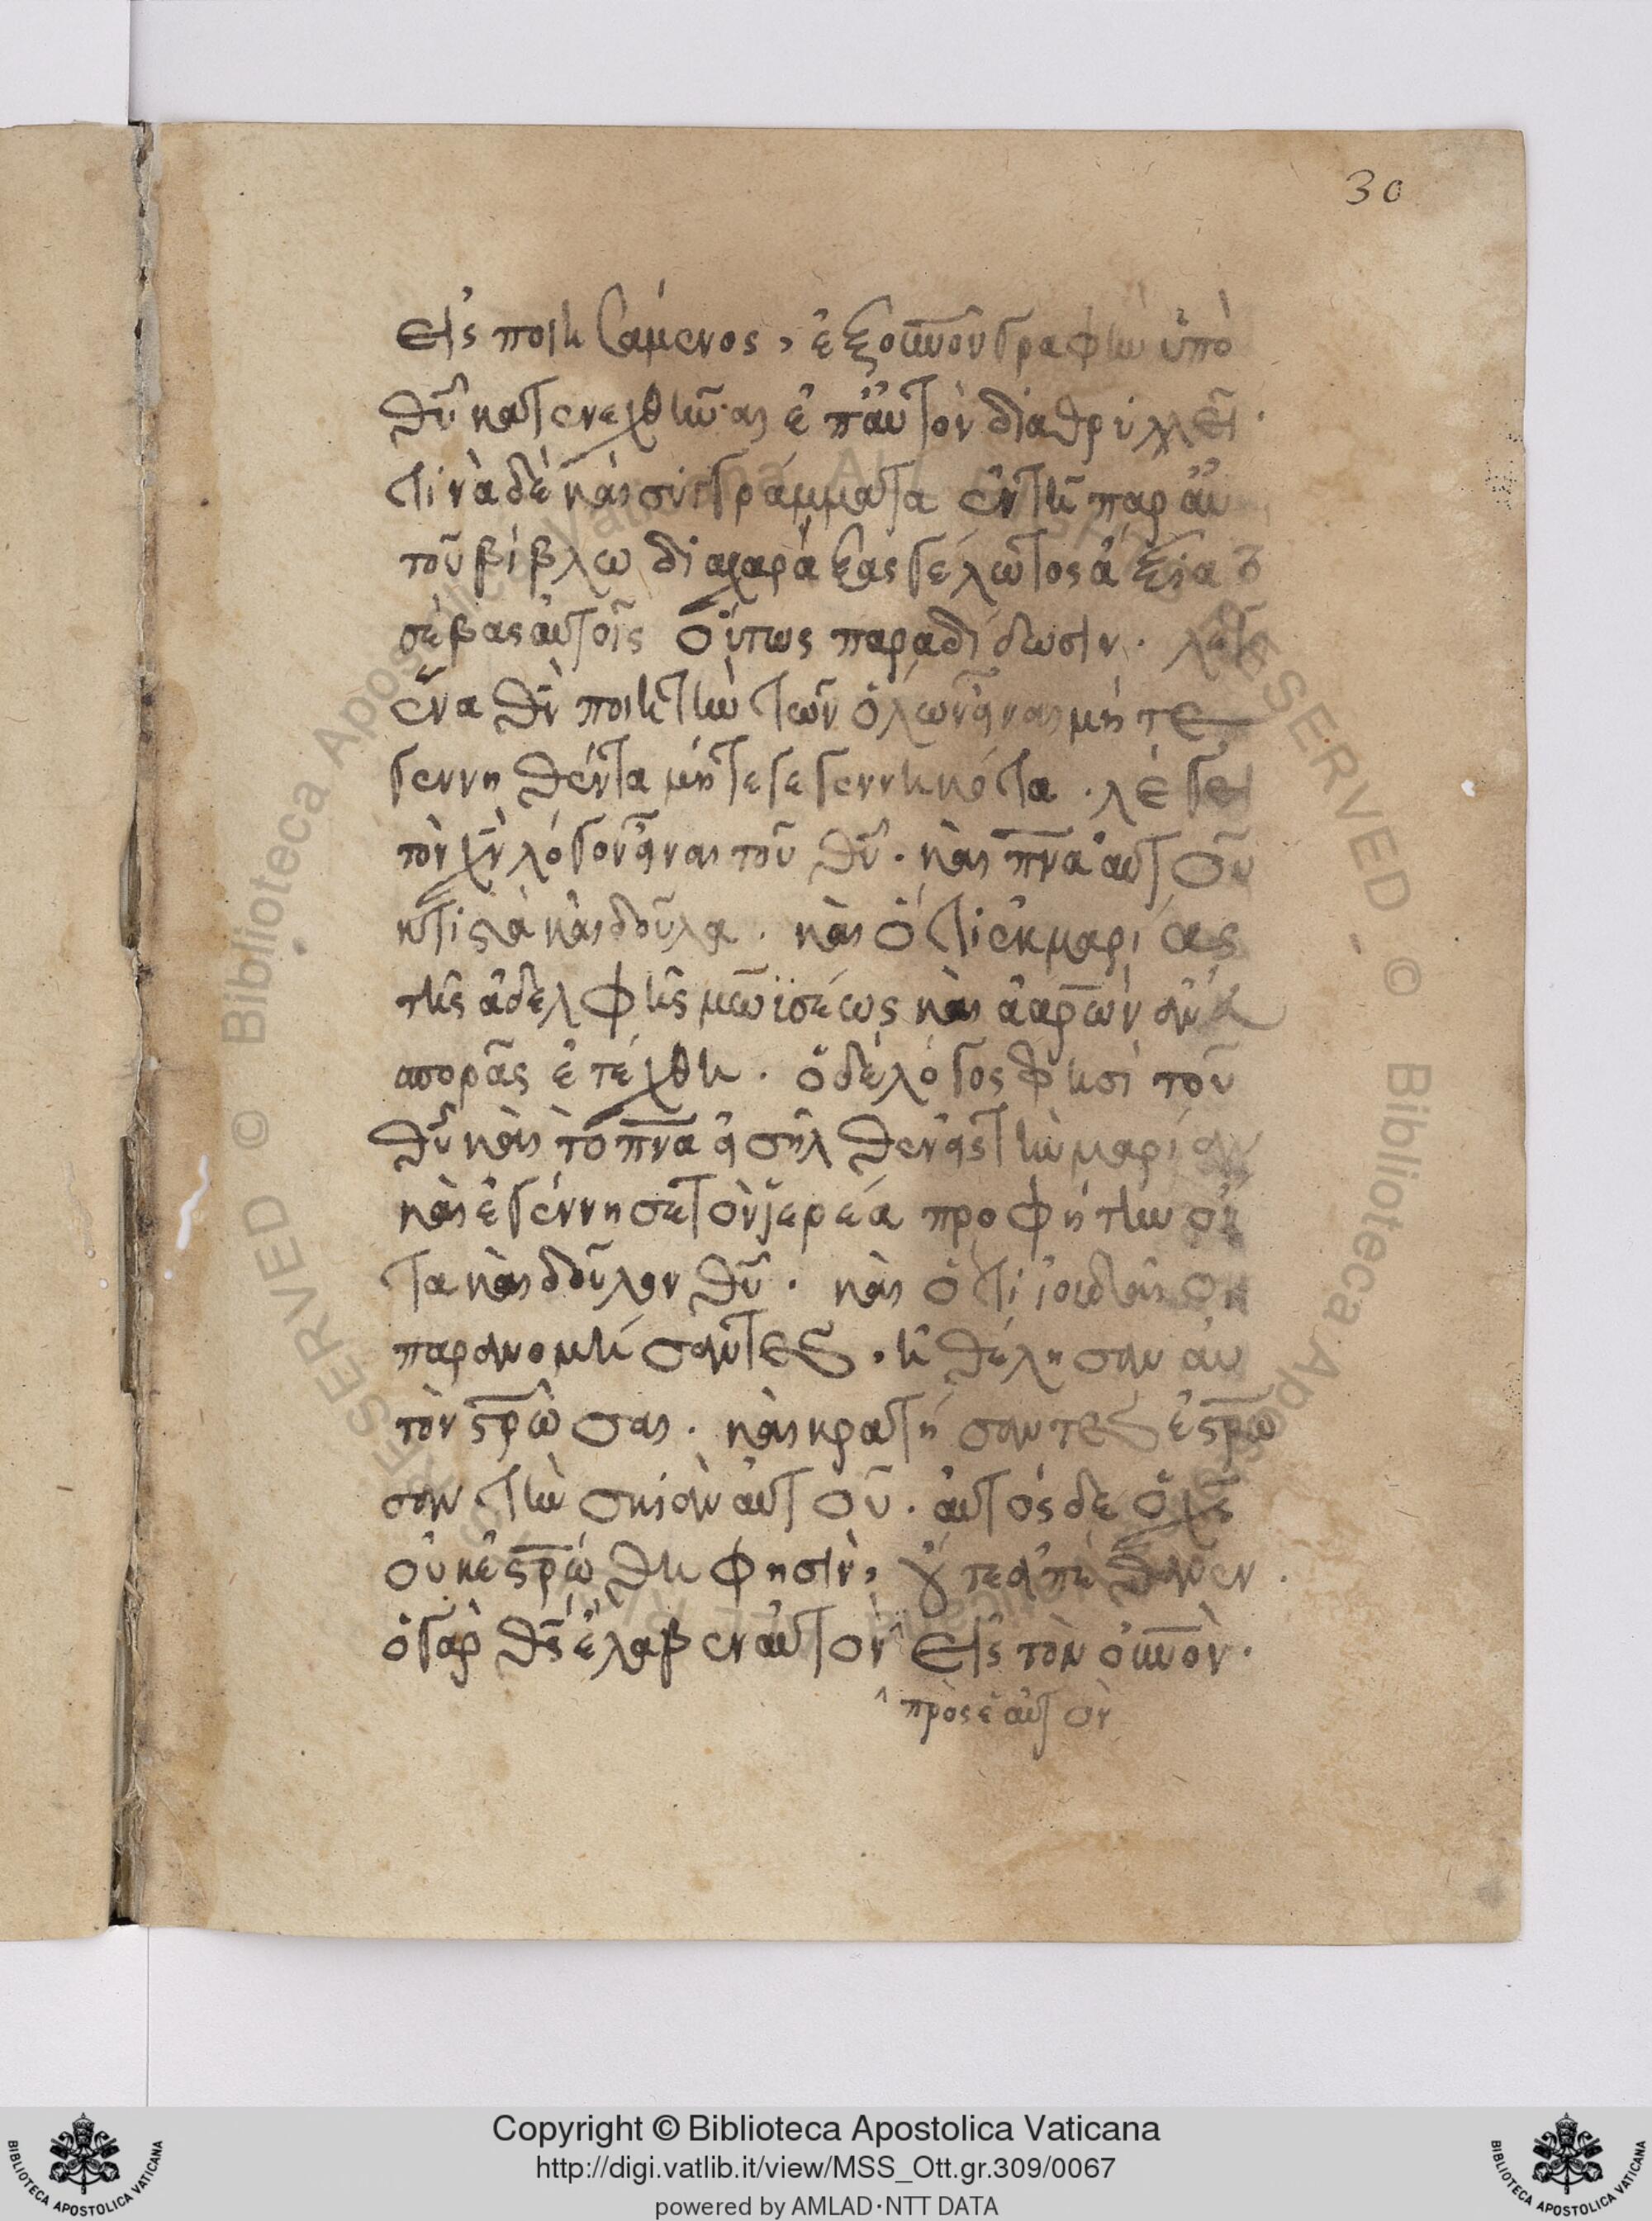 30
εἰς ποιησάμενος, ἐξ οὐνοῦ γραφὴν ὑπὸ
θῦ κατενεχθῆναι ἐπ' αὐτὸν διαθρυλλεῖ.
τινὰ δὲ καὶ συγγράμματα ἐν τῆ παρ' αὐ
τοῦ βίβλω διαχαράξας γέλωτος ἄξια
σέβας αὐτοῖς οὕτως παραδίδωσιν. λέγει
ἕνα θν ποιητὴν τῶν ὅλων εἶναι μήτε
γεννηθέντα μήτε γεγεννηκότα. λέγει
τὸν χν λόγον εἶναι τοῦ θῦ. καὶ πνα αὐτοῦ
κτιστὰ καὶ δοῦλα. καὶ ὅτι ἐκ μαρίας
τῆς ἀδελφῆς μωϊσέως καὶ ἀαρὼν ἄνευ
σπορᾶς ἐτέχθη. ὁ δὲ λόγος φησὶ τοῦ
θῦ καὶ τὸ πνα εἰσῆλθεν εἰς τὴν μαρίαν
καὶ ἐγέννησε τὸν ἱερέα προφήτην ὄν
τα καὶ δοῦλον θῦ. καὶ ὅτι ἰουδαῖοι
παρανομήσαντες, ἠθέλησαν αὐ
τὸν στρῶσαι. καὶ κρατήσαντες ἐστρω
σαν τὴν σκιὰν αὐτοῦ. αὐτὸς δὲ ὁ χς
οὐκ ἐστρώθη φησὶν, οὔτε ἀπέθανεν.
ὁ γὰρ θς ἔλαβεν αὐτὸν^ εἰς τὸν οὐνον.
^ πρὸς ἑαυτὸν
Copyright © Biblioteca Apostolica Vaticana
http://digi.vatlib.it/view/MSS_Ott.gr.309/0067
powered by AMLAD·NTT DATA